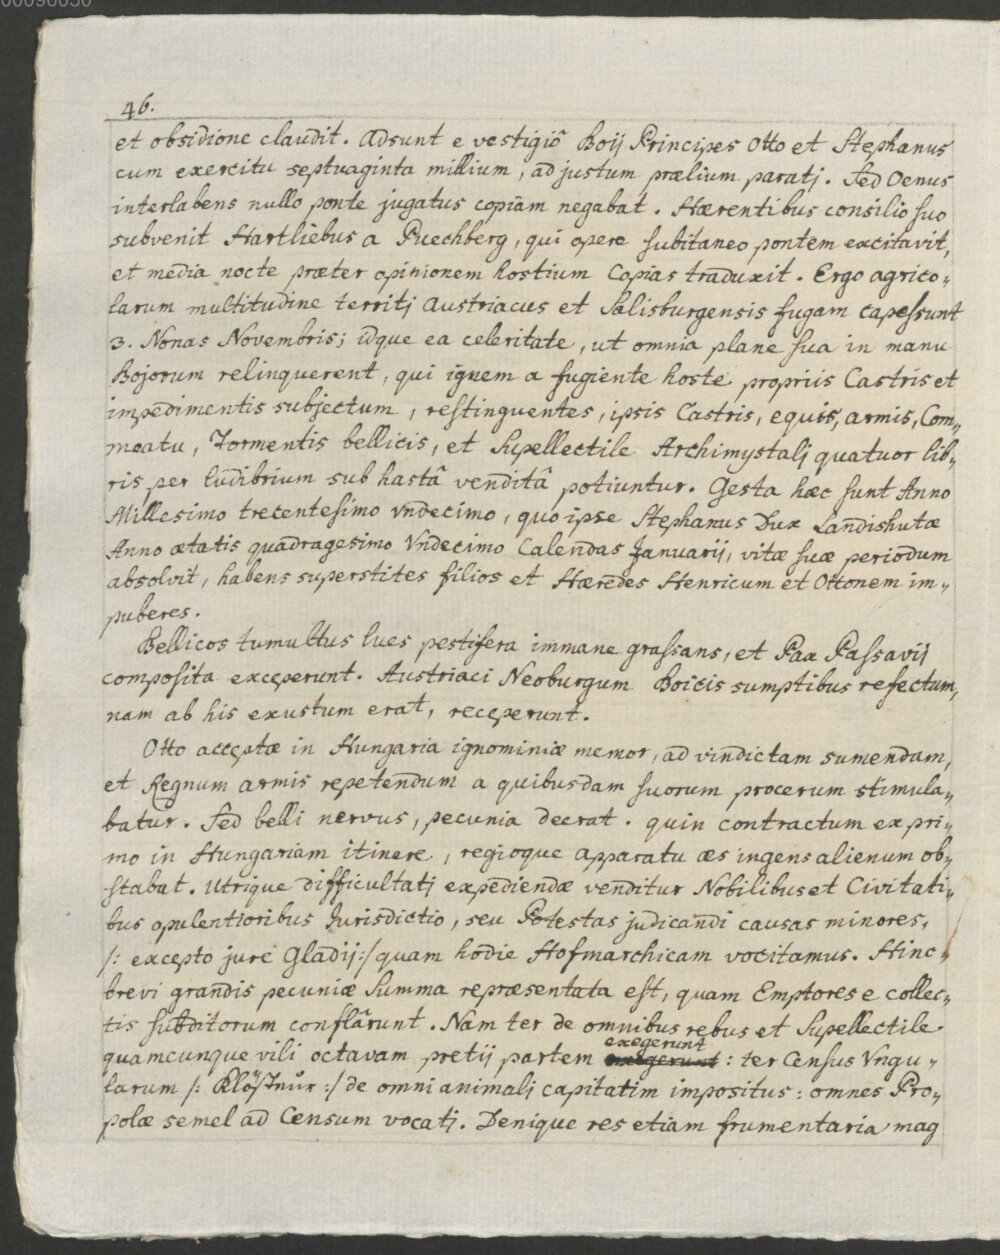 00096050
46.
et obsidione claudit. Adsunt e vestigiò Boij Principes Otto et Stephanus
cum exercitu septuaginta millium, ad justum prælium paratj. Sed Oenus
interlabens nullo ponte jugatus copiam negabat. Hærentibus consilio suo
subvenit Hartliebus a Puechberg, qui opere subitaneo pontem excitavit,
et media nocte præter opinionem hostium Copias traduxit. Ergo agrico„
larum multitudine territj Austriacus et Salisburgensis fugam capessunt
3. Nonas Novembris; idque ea celeritate, ut omnia plane sua in manu
Bojorum relinquerent, qui ignem a fugiente hoste propriis Castris et
impedimentis subjectum, restinguentes, ipsis Castris, equis, armis, Com„
meatu, Tormentis bellicis, et Supellectile Archimystalj quatuor lib„
ris per ludibrium sub hastâ venditâ potiuntur. Gesta hæc sunt Anno
Millesimo trecentesimo vndecimo, quo ipse Stephanus Dux Landishutæ
Anno ætatis quadragesimo Vndecimo Calendas Januarij, vitæ suæ periodum
absolvit, habens superstites filios et Hæredes Henricum et Ottonem im„
puberes.
Bellicos tumultus lues pestifera immane grassans, et Pax Passavij
composita exceperunt. Austriaci Neoburgum Boicis sumptibus refectum,
nam ab his exustum erat, receperunt.
Otto acceptæ in Hungaria ignominiæ memor, ad vindictam sumendam,
et Regnum armis repetendum a quibusdam suorum procerum stimula„
batur. Sed belli nervus, pecunia deerat. quin contractum ex pri„
mo in Hungariam itinere, regioque apparatu æs ingens alienum ob„
stabat. Utrique difficultatj expediendæ venditur Nobilibus et Civitati„
bus opulentioribus Jurisdictio, seu Potestas judicandi causas minores,
/: excepto jure Gladij :/ quam hodie Hofmarchicam vocitamus. Hinc
brevi grandis pecuniæ Summa repræsentata est, quam Emptores e collec„
tis subditorum conflârunt. Nam ter de omnibus rebus et Supellectile
exegerunt
quamcunque vili octavam pretij partem exegerunt : ter Census Vngu„
larum /: Klösteür :/ de omni animalj capitatim impositus: omnes Pro„
polæ semel ad Censum vocatj. Denique res etiam frumentaria mag